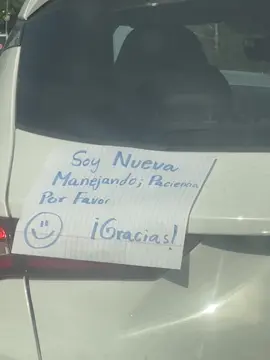 Soy Nueva
Manejando; Paciencia
Por Favor
¡Gracias!